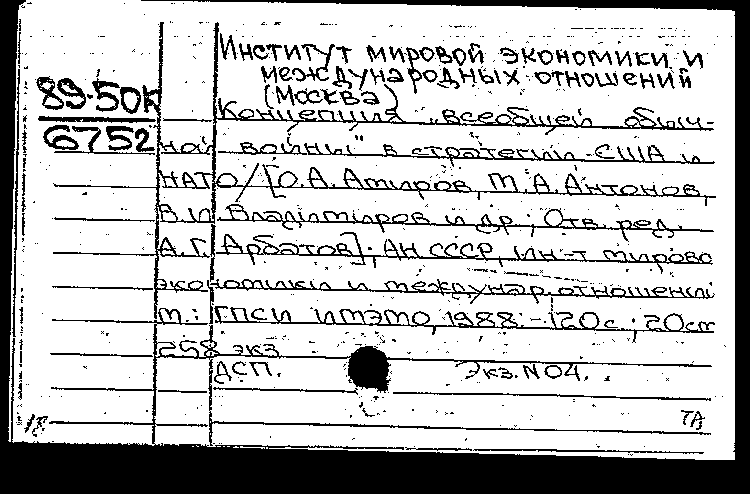 Институт мировой экономики и
международных отношений
(Москва)
89-50к
6752
Концепция „всеобщей обыч-
ной войны" в стратегии США и
НАТО/[О.А. Амиров, М.А. Антонов,
В.И. Владимиров и др.; Отв. ред.
А.Г. Арбатов]; АН СССР, Ин-т мирово
экономики и междунар. отношений
М.: ГПСИ ИМЭМО, 1988. - 120с; 20см
258 экз
ДСП. Экз. N04.
18 ТА